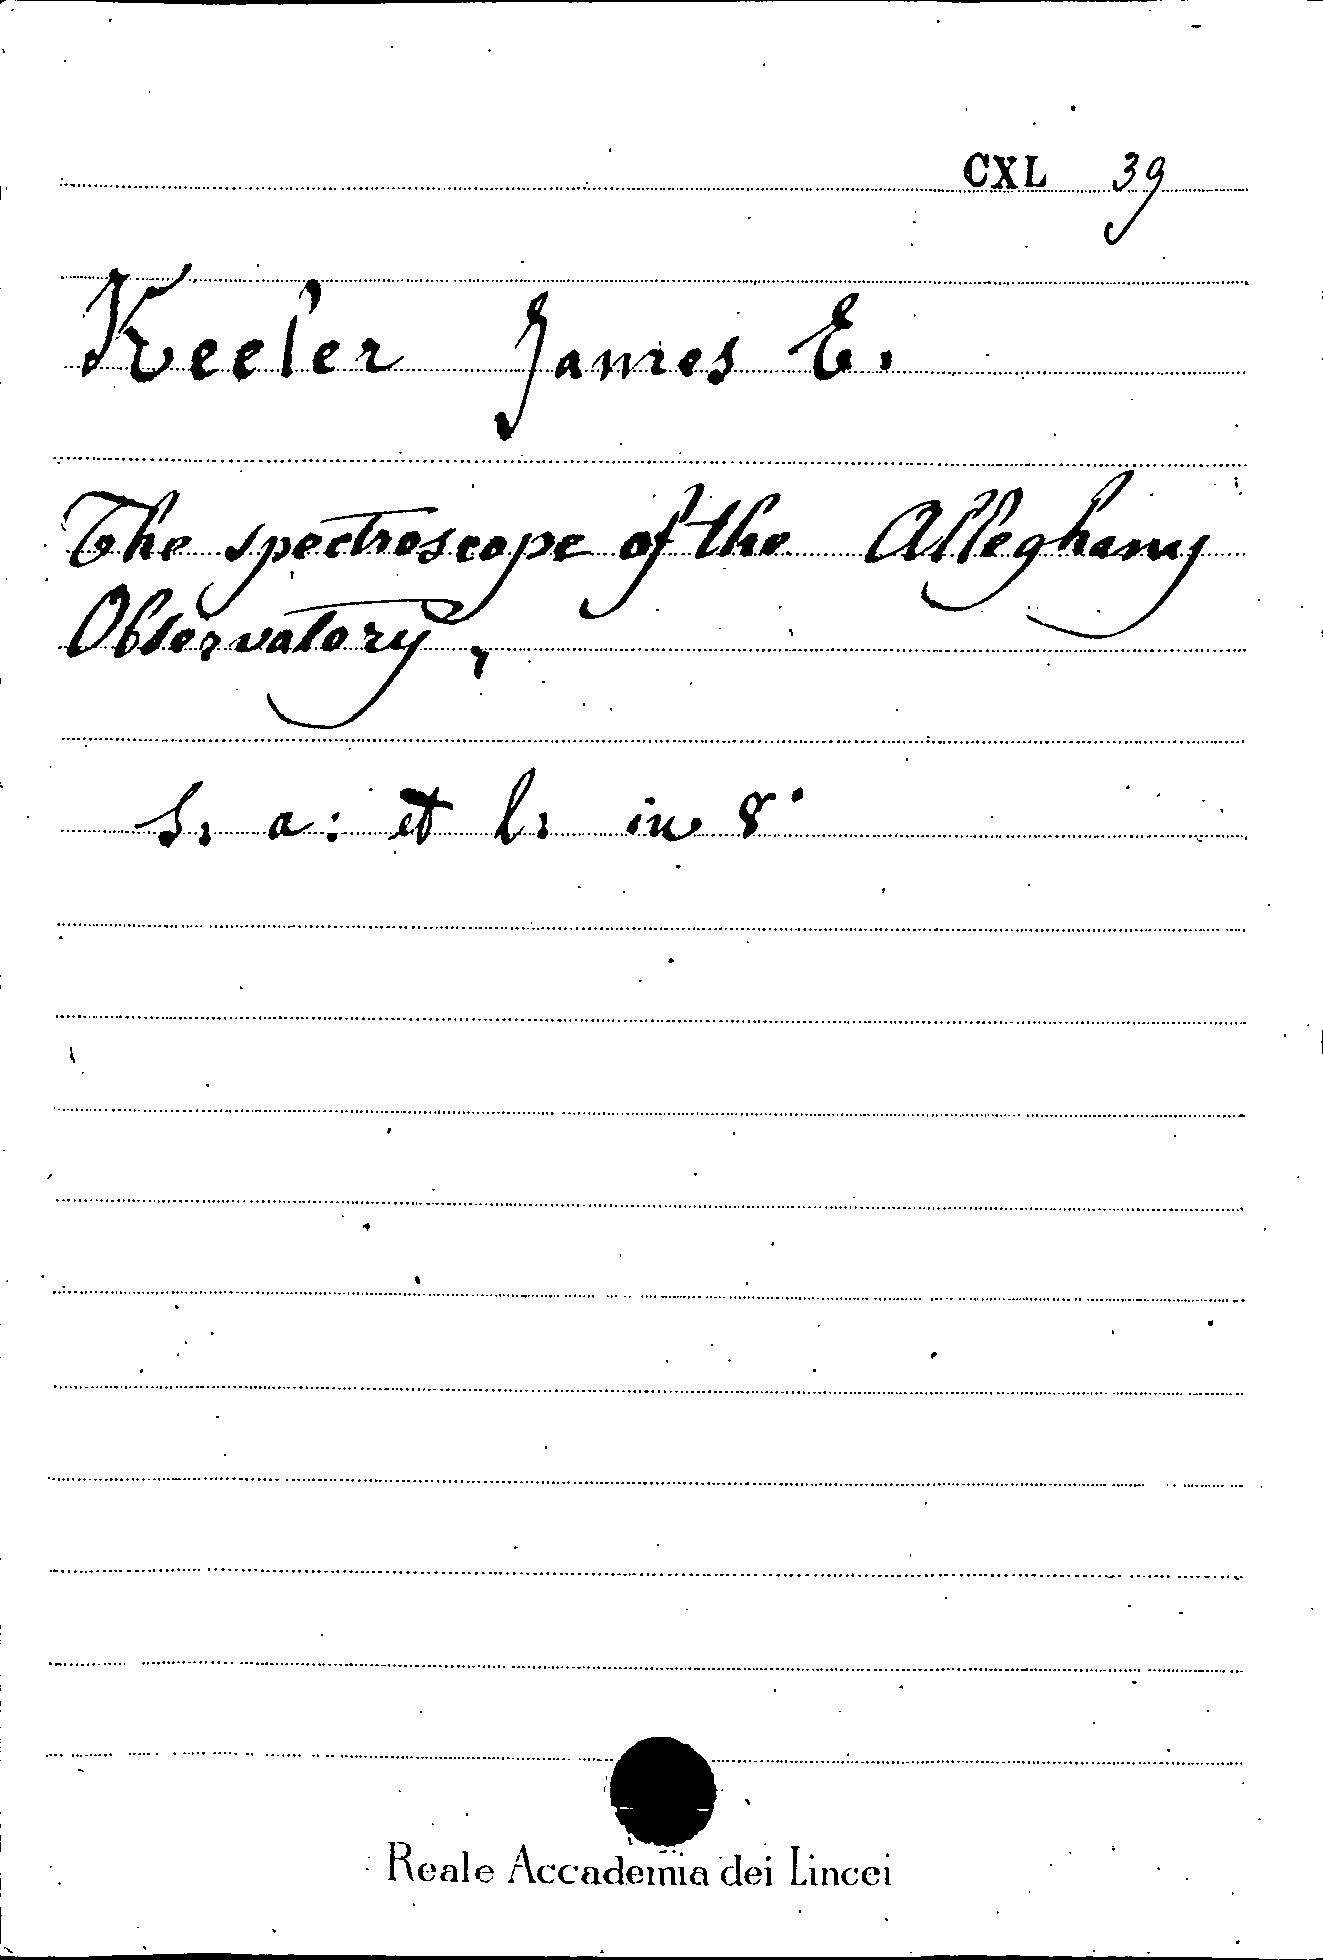 CXL 39
Keeler James E.
The spectroscope of the Alleghany
Observatory,
S. a: et l: in 8°
Reale Accademia dei Lincei